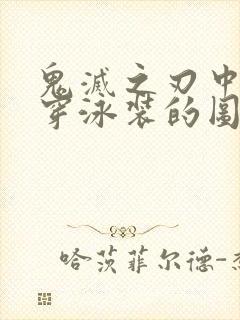 鬼滅之刃中
穿泳装的图
哈茨菲尔德-杰